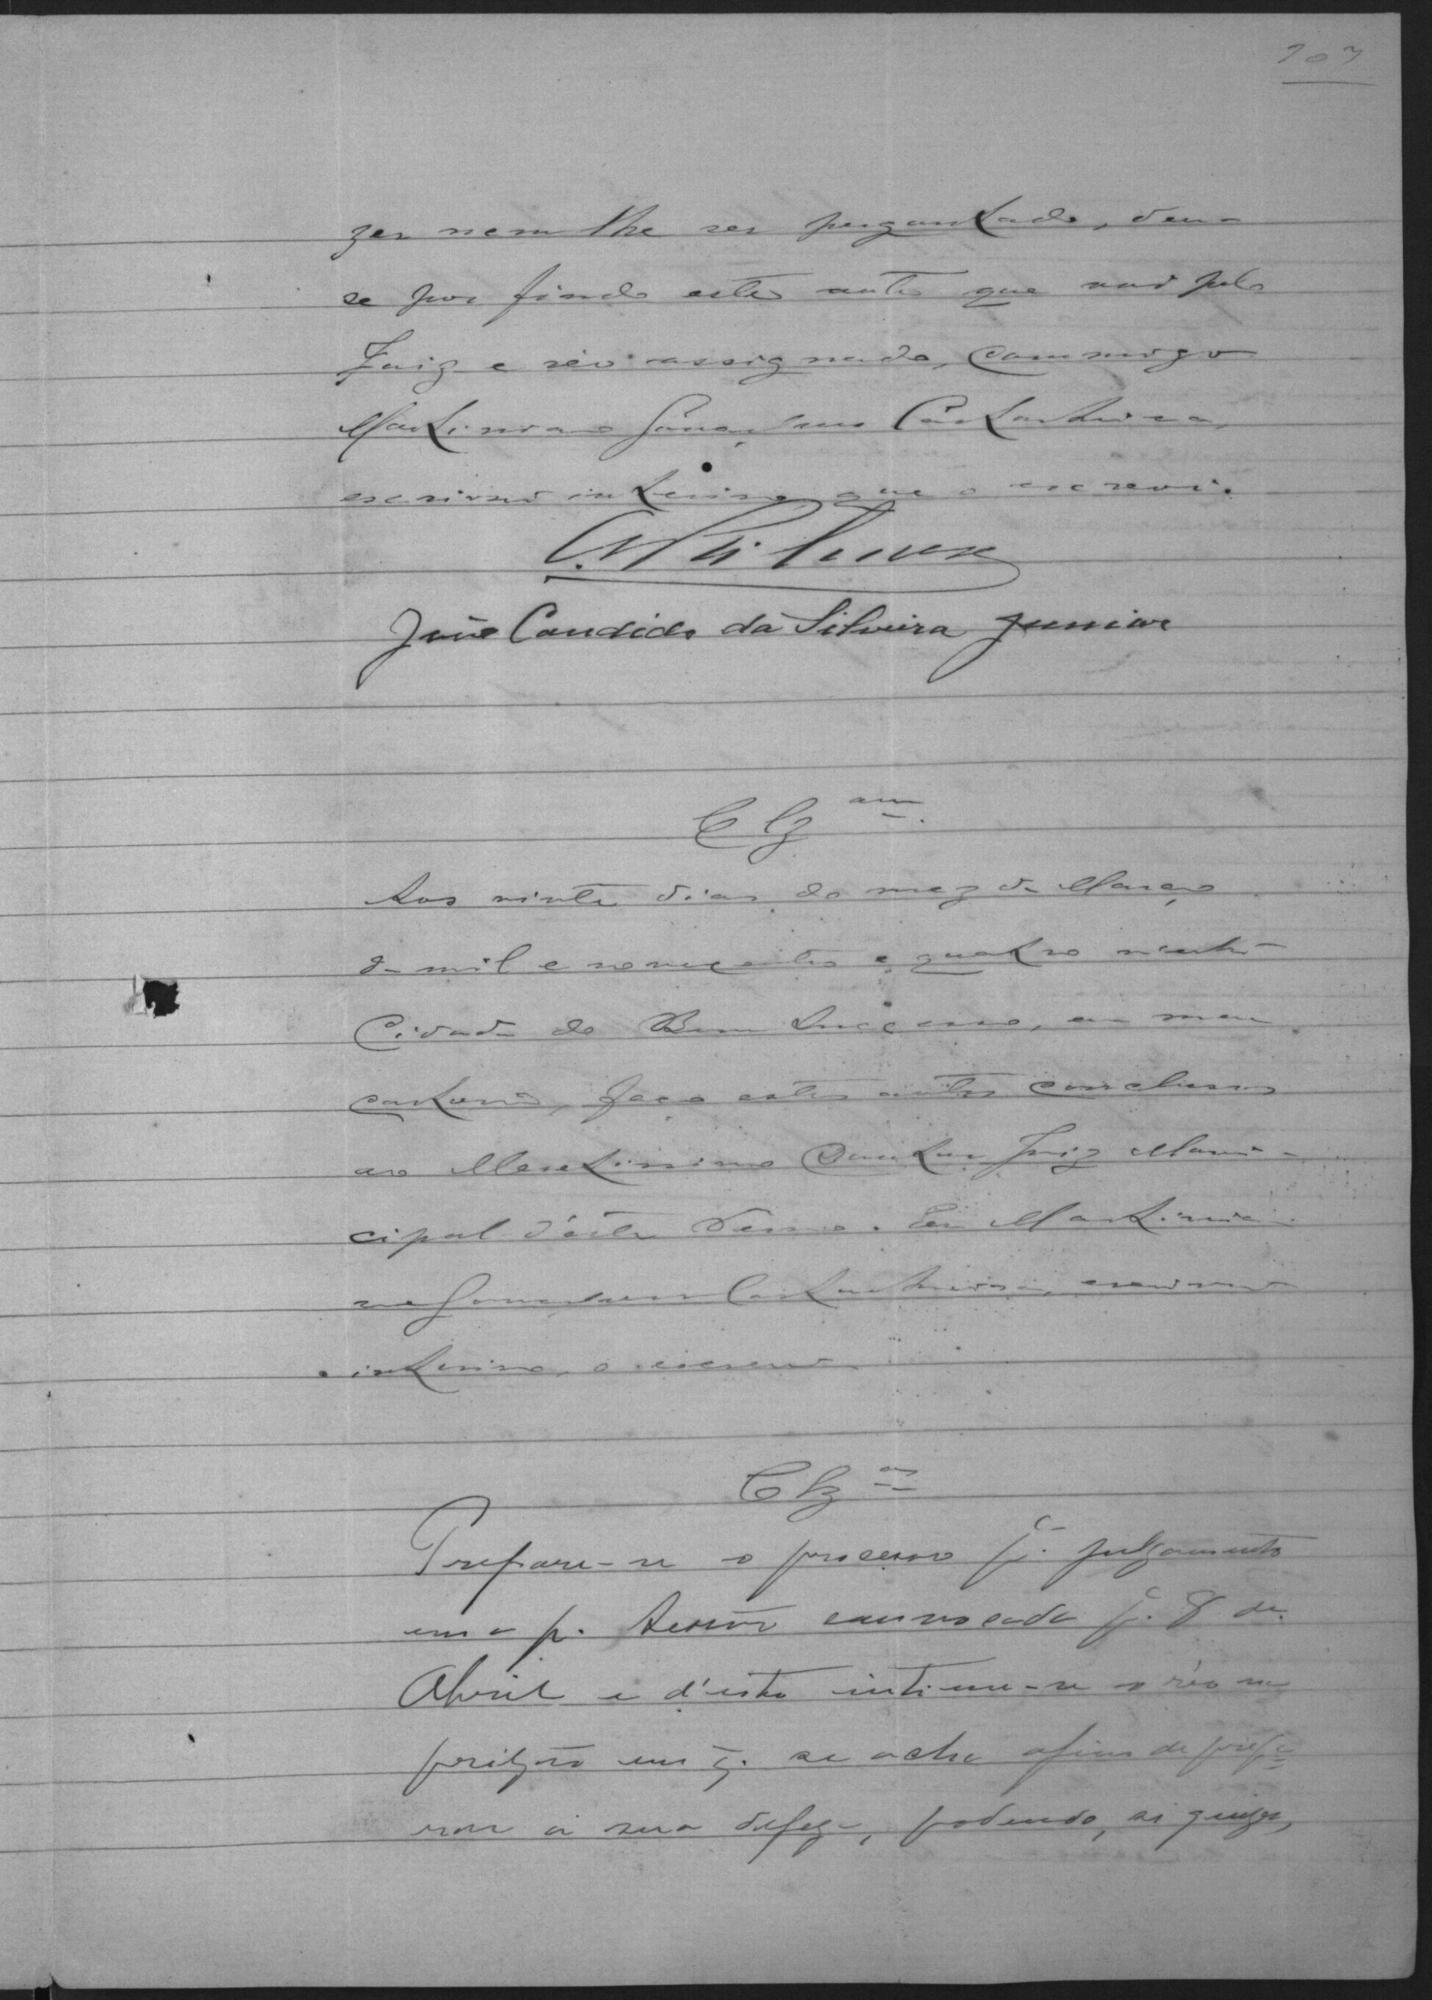 107
zer nem lhe ser perguntado, deu-
se por findo este auto que vai pelo
Juiz e réo assignado, commigo
Martiniano Gonçalves
escrivão interino que o escrevi.
João Candido da Silveira Junior
Clz am.
Aos vinte dias do mez de Março
de mil e novecentos e quatro n'esta
Cidade do Bom Successo, em meu
cartorio, faço estes autos conclusos
ao Meretissimo Doutor Juiz Muni-
cipal d'este Termo. Eu Martinia-
no Gonçalves escrivão
interino, o escrevi.
Clz os
Prepare-se o processo pª. julgamento
em a p. sessão convocada pª. 8 de
Abril e d'isto intime-se o réo na
prizão em q. se acha afim de prepa-
rar a sua defeza, podendo, si quizer,